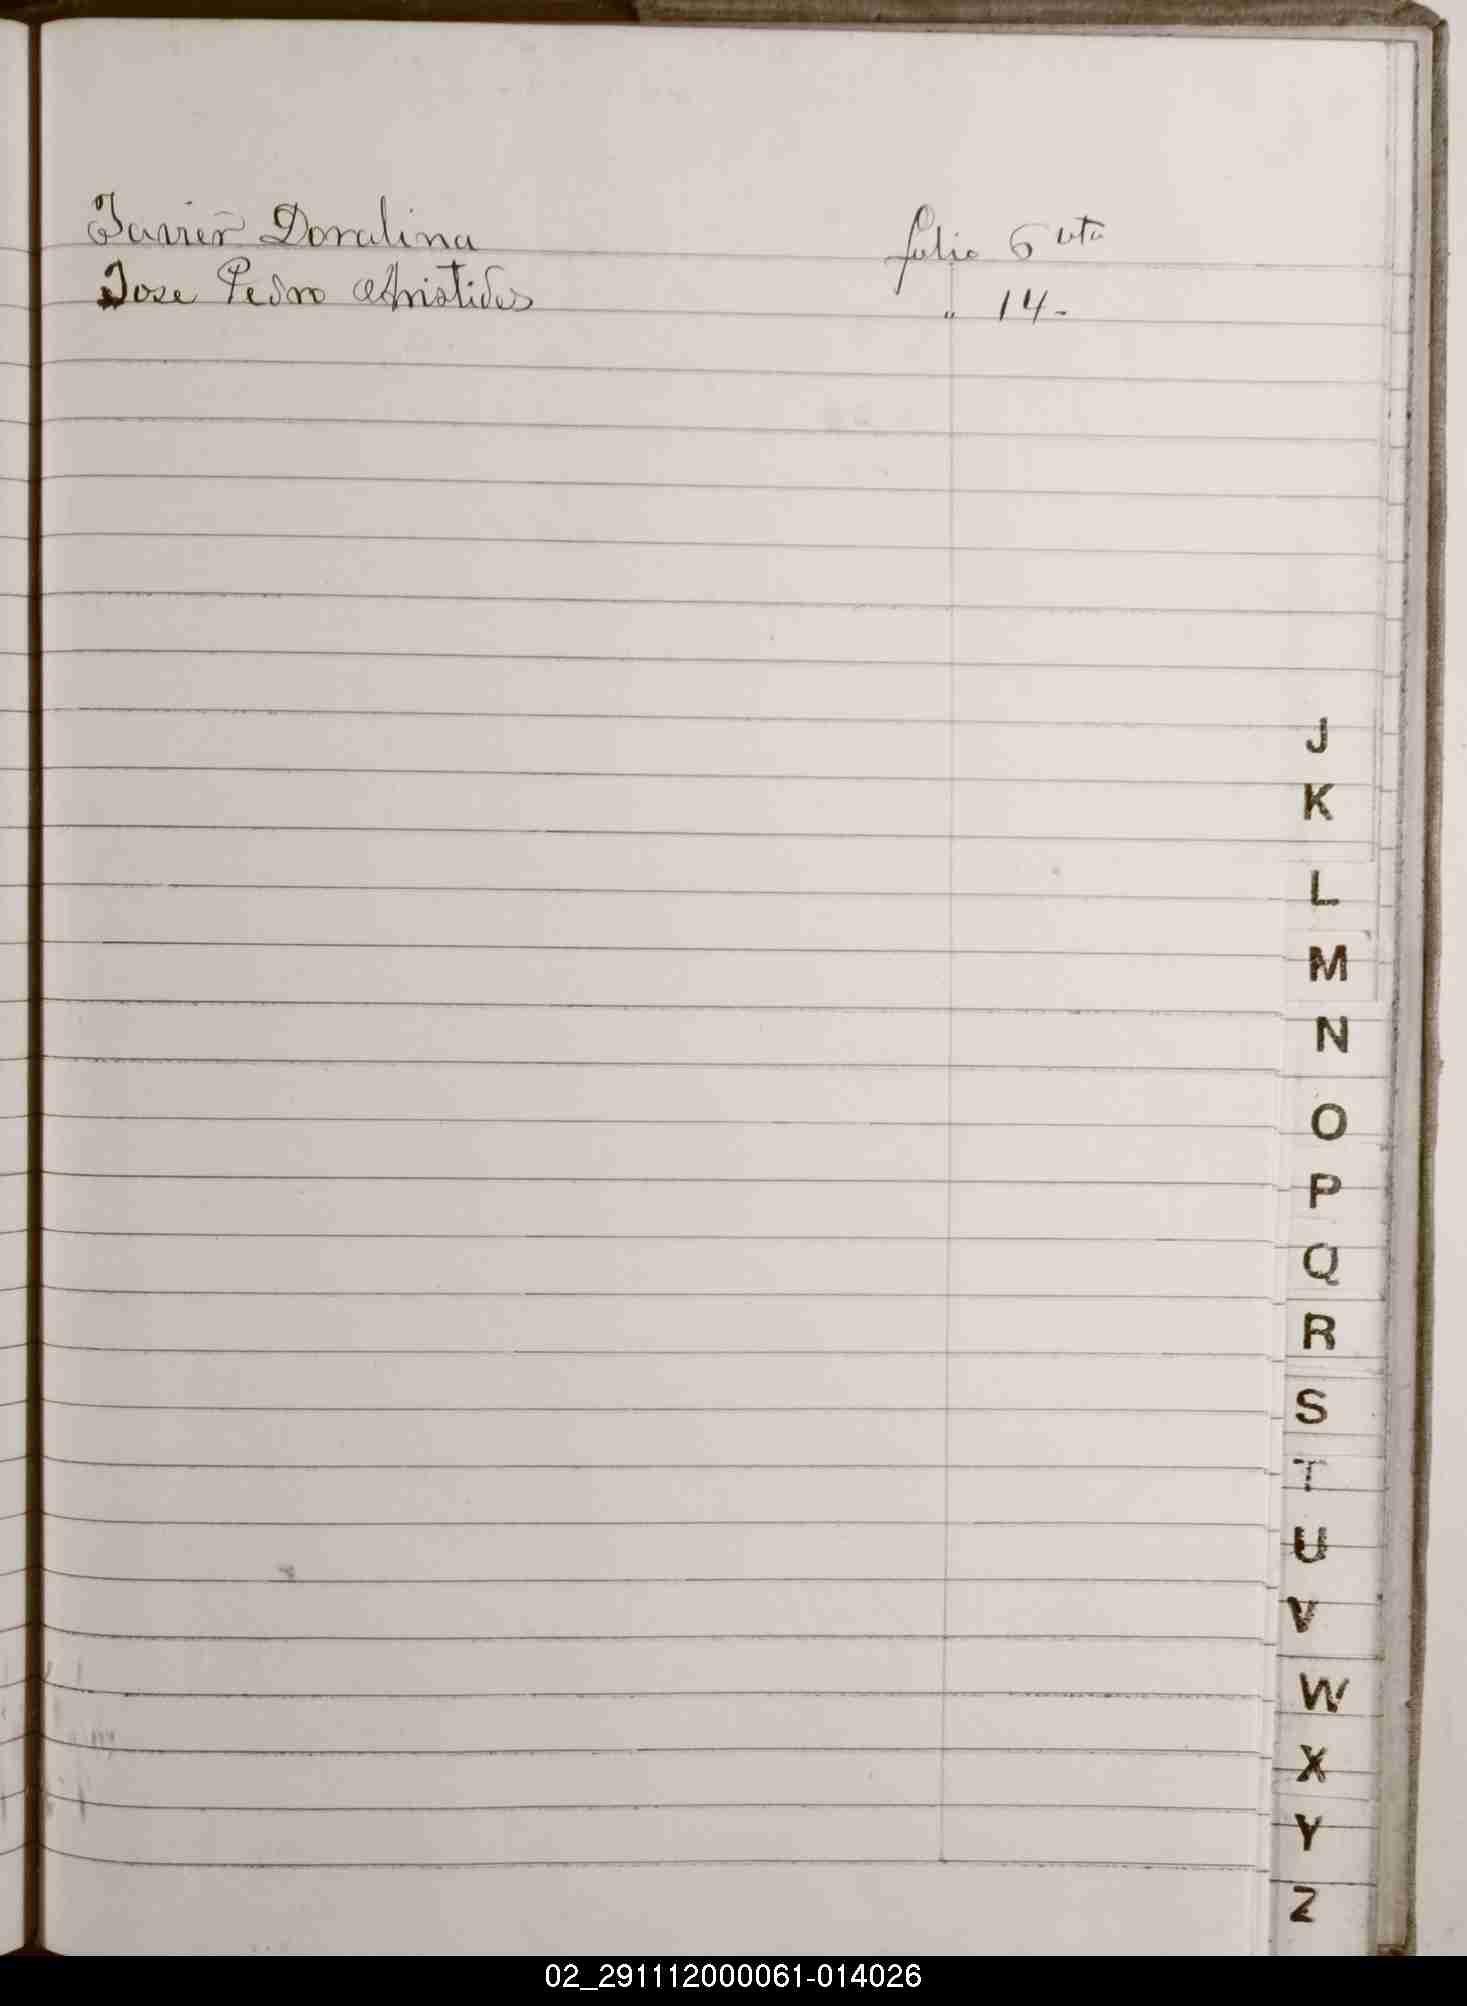 Javier Doralina folio 6 vta
Jose Pedro Aristides " 14-
J
K
L
M
N
O
P
Q
R
S
T
U
V
W
X
Y
Z
02_291112000061-014026